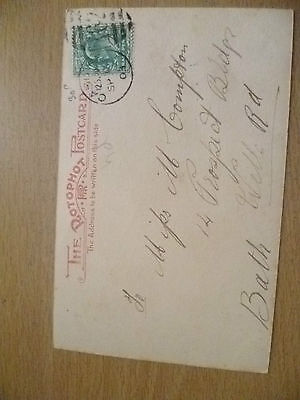 THE ROTOPHOT POSTCARD
The Address to be written on this side
To
Miss M Compton
14 Prospect Bldgs
Rd
Bath